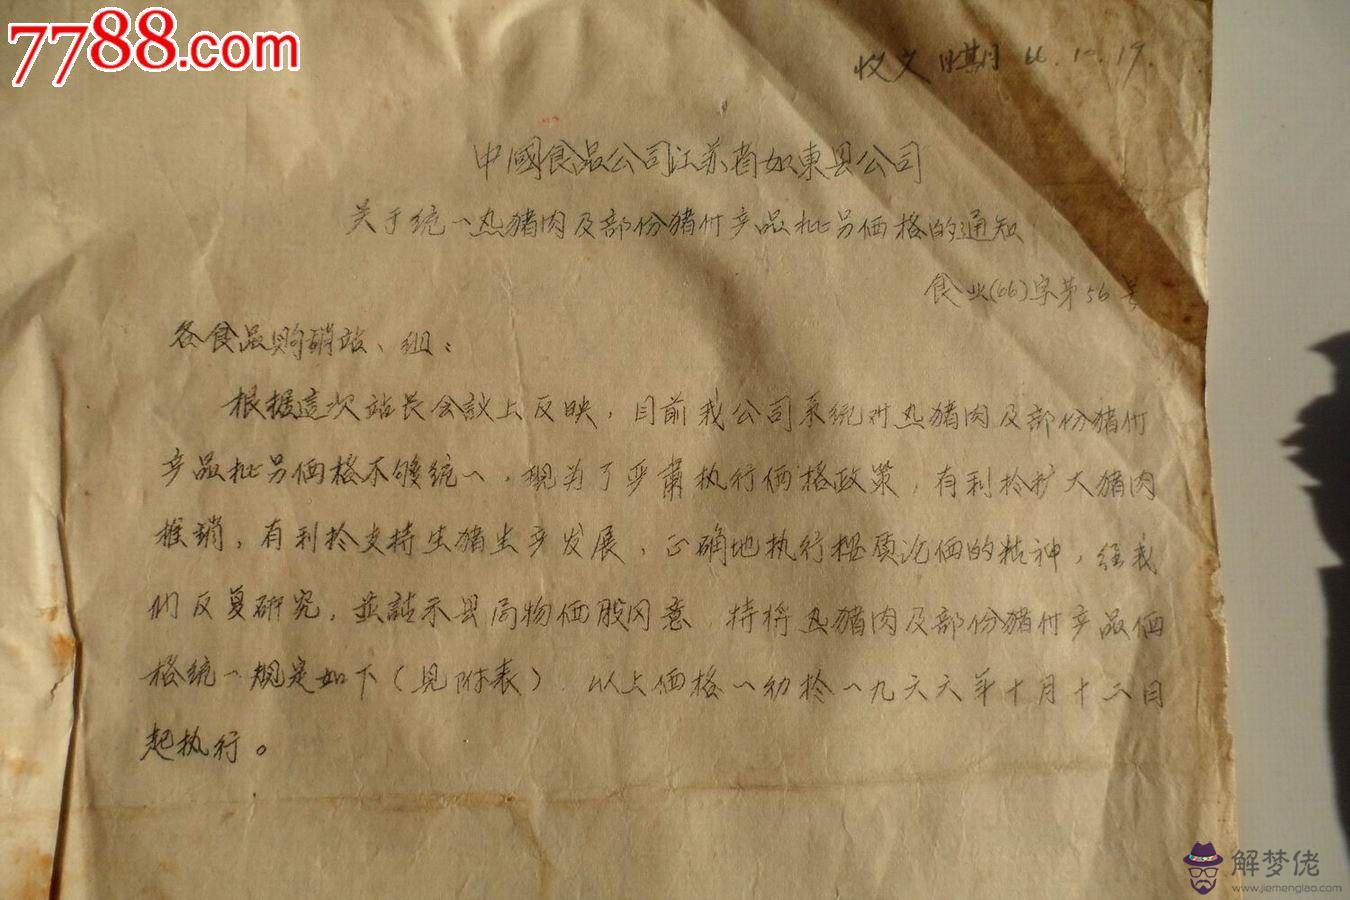 7788.com
收文日期 66.10.19.
中國食品公司江苏省如東县公司
关于统一热猪肉及部份猪付产品批另価格的通知
食业(66)字第56号
各食品购销站、组：
根据這次站长会議上反映，目前我公司系统对热猪肉及部份猪付
产品批另価格不够统一，现为了严肃执行価格政策，有利於扩大猪肉
推銷，有利於支持生猪生产发展，正确地执行按质论価的精神，经我
们反复研究，並請示县局物価股同意，特将热猪肉及部份猪付产品価
格统一规定如下(见附表)以上価格一的於一九六六年十月十二日
起执行。
解梦佬
www.jiemenglao.com